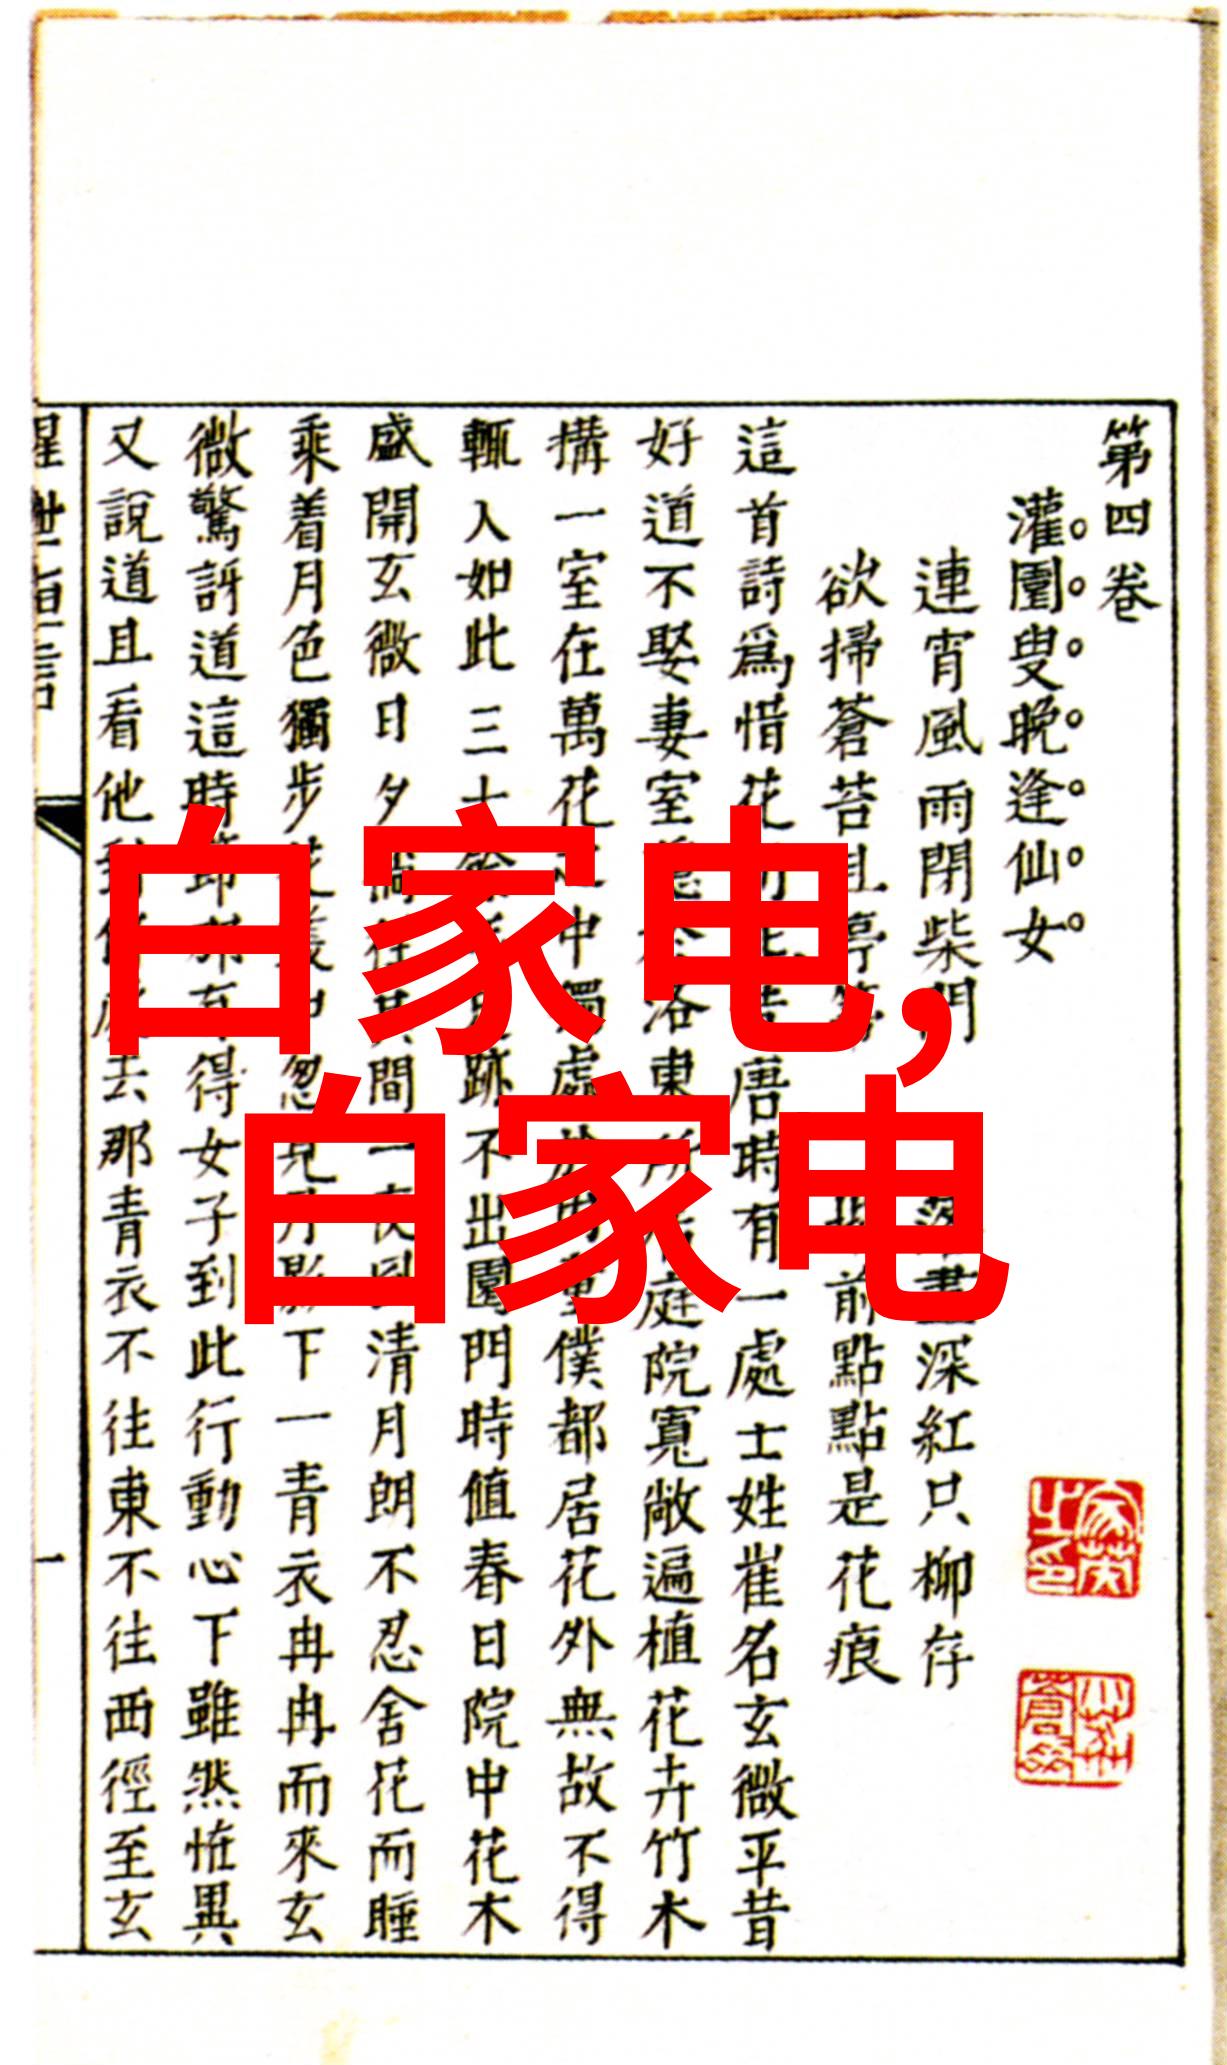 第四卷
灌園叟晚逢仙女
連宵風雨閉柴門盡深紅只柳存
欲掃蒼苔且停前點點是花痕
這首詩爲惜花唐時有一處士姓崔名玄微平昔
好道不娶妻室洛東所居庭院寬敞遍植花卉竹木
搆一室在萬花中獨處僕都居花外無故不得
輒入如此三十跡不出園門時值春日院中花木
盛開玄微日夕其間一夜清月朗不忍舍花而睡
乘着月色獨步忽見月影下一青衣冉冉而來玄
微驚訝道這時節得女子到此行動心下雖然怪異
又說道且看他到去那青衣不往東不往西徑至玄
一
白家电,
白家电